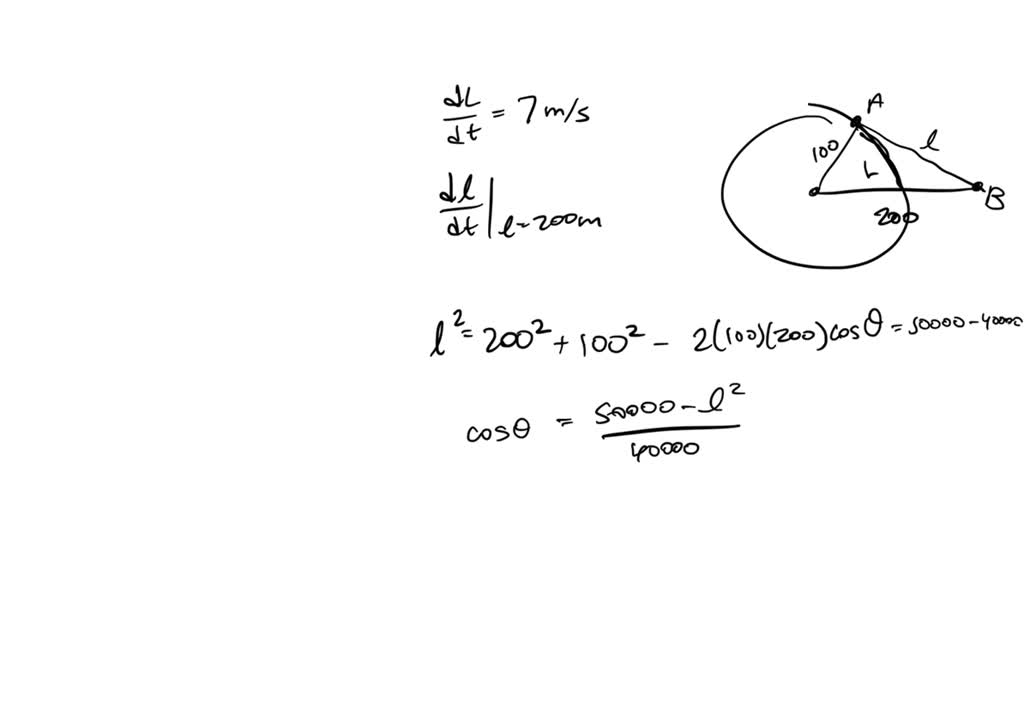 dL/dt = 7 m/s
A
100
l
L
B
200
dl/dt | l=200m
l² = 200² + 100² - 2(100)(200)cosθ = 50000 - 40000
cosθ = 50000 - l² / 40000